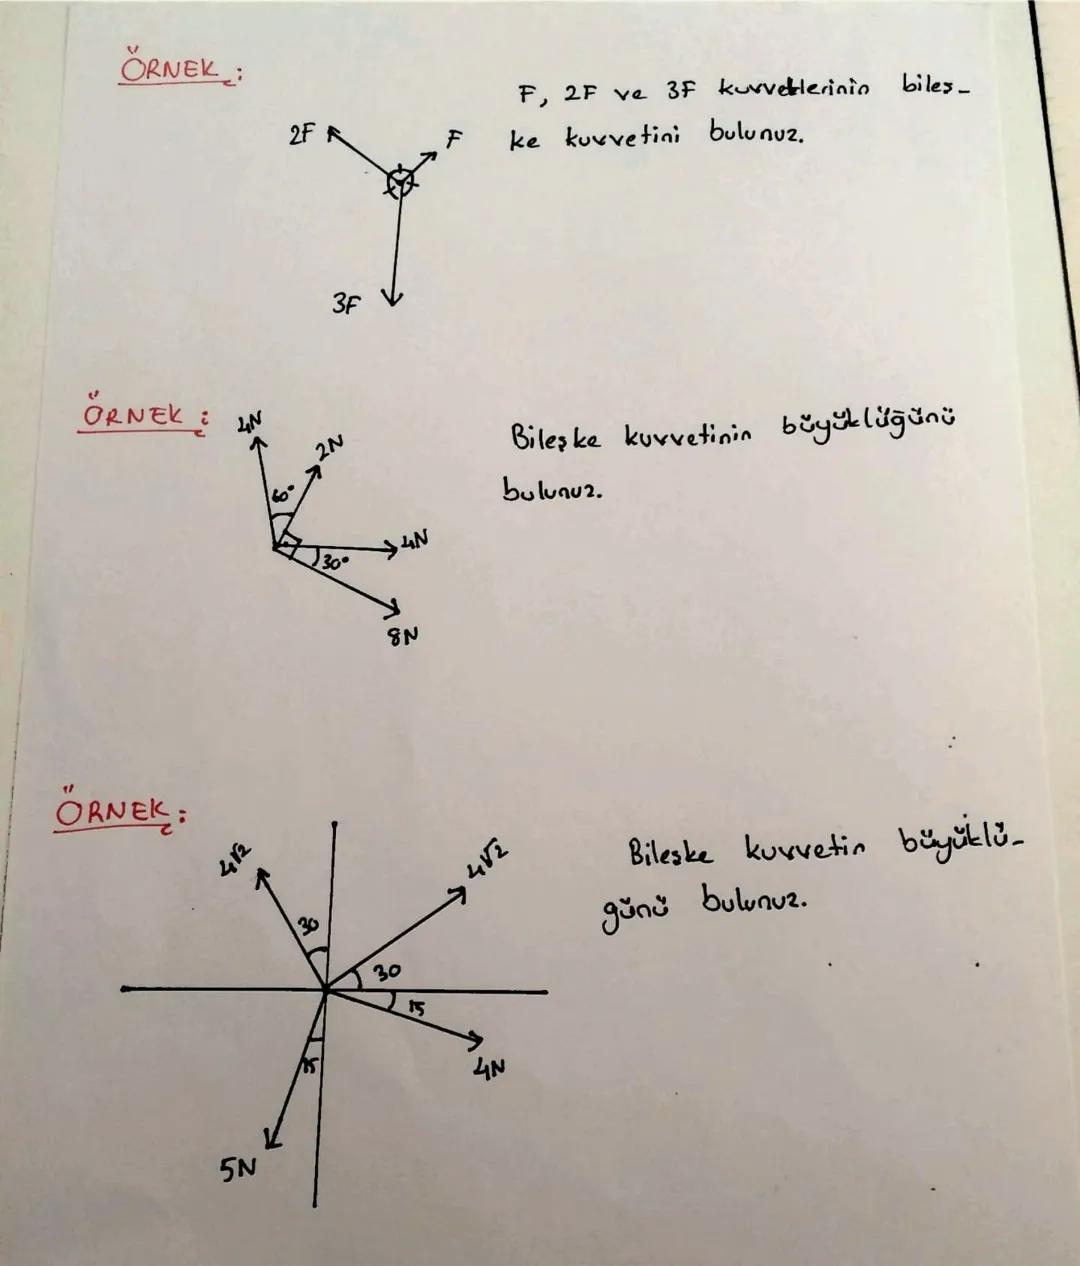 ÖRNEK :
F, 2F ve 3F kuvvetlerinin bileş-
ke kuvvetini bulunuz.
2F
F
3F
ÖRNEK :
Bileşke kuvvetinin büyüklüğünü
bulunuz.
4N
2N
60°
4N
30°
8N
ÖRNEK :
Bileşke kuvvetin büyüklü-
günü bulunuz.
4√2
4√2
30
30
15
15
4N
5N